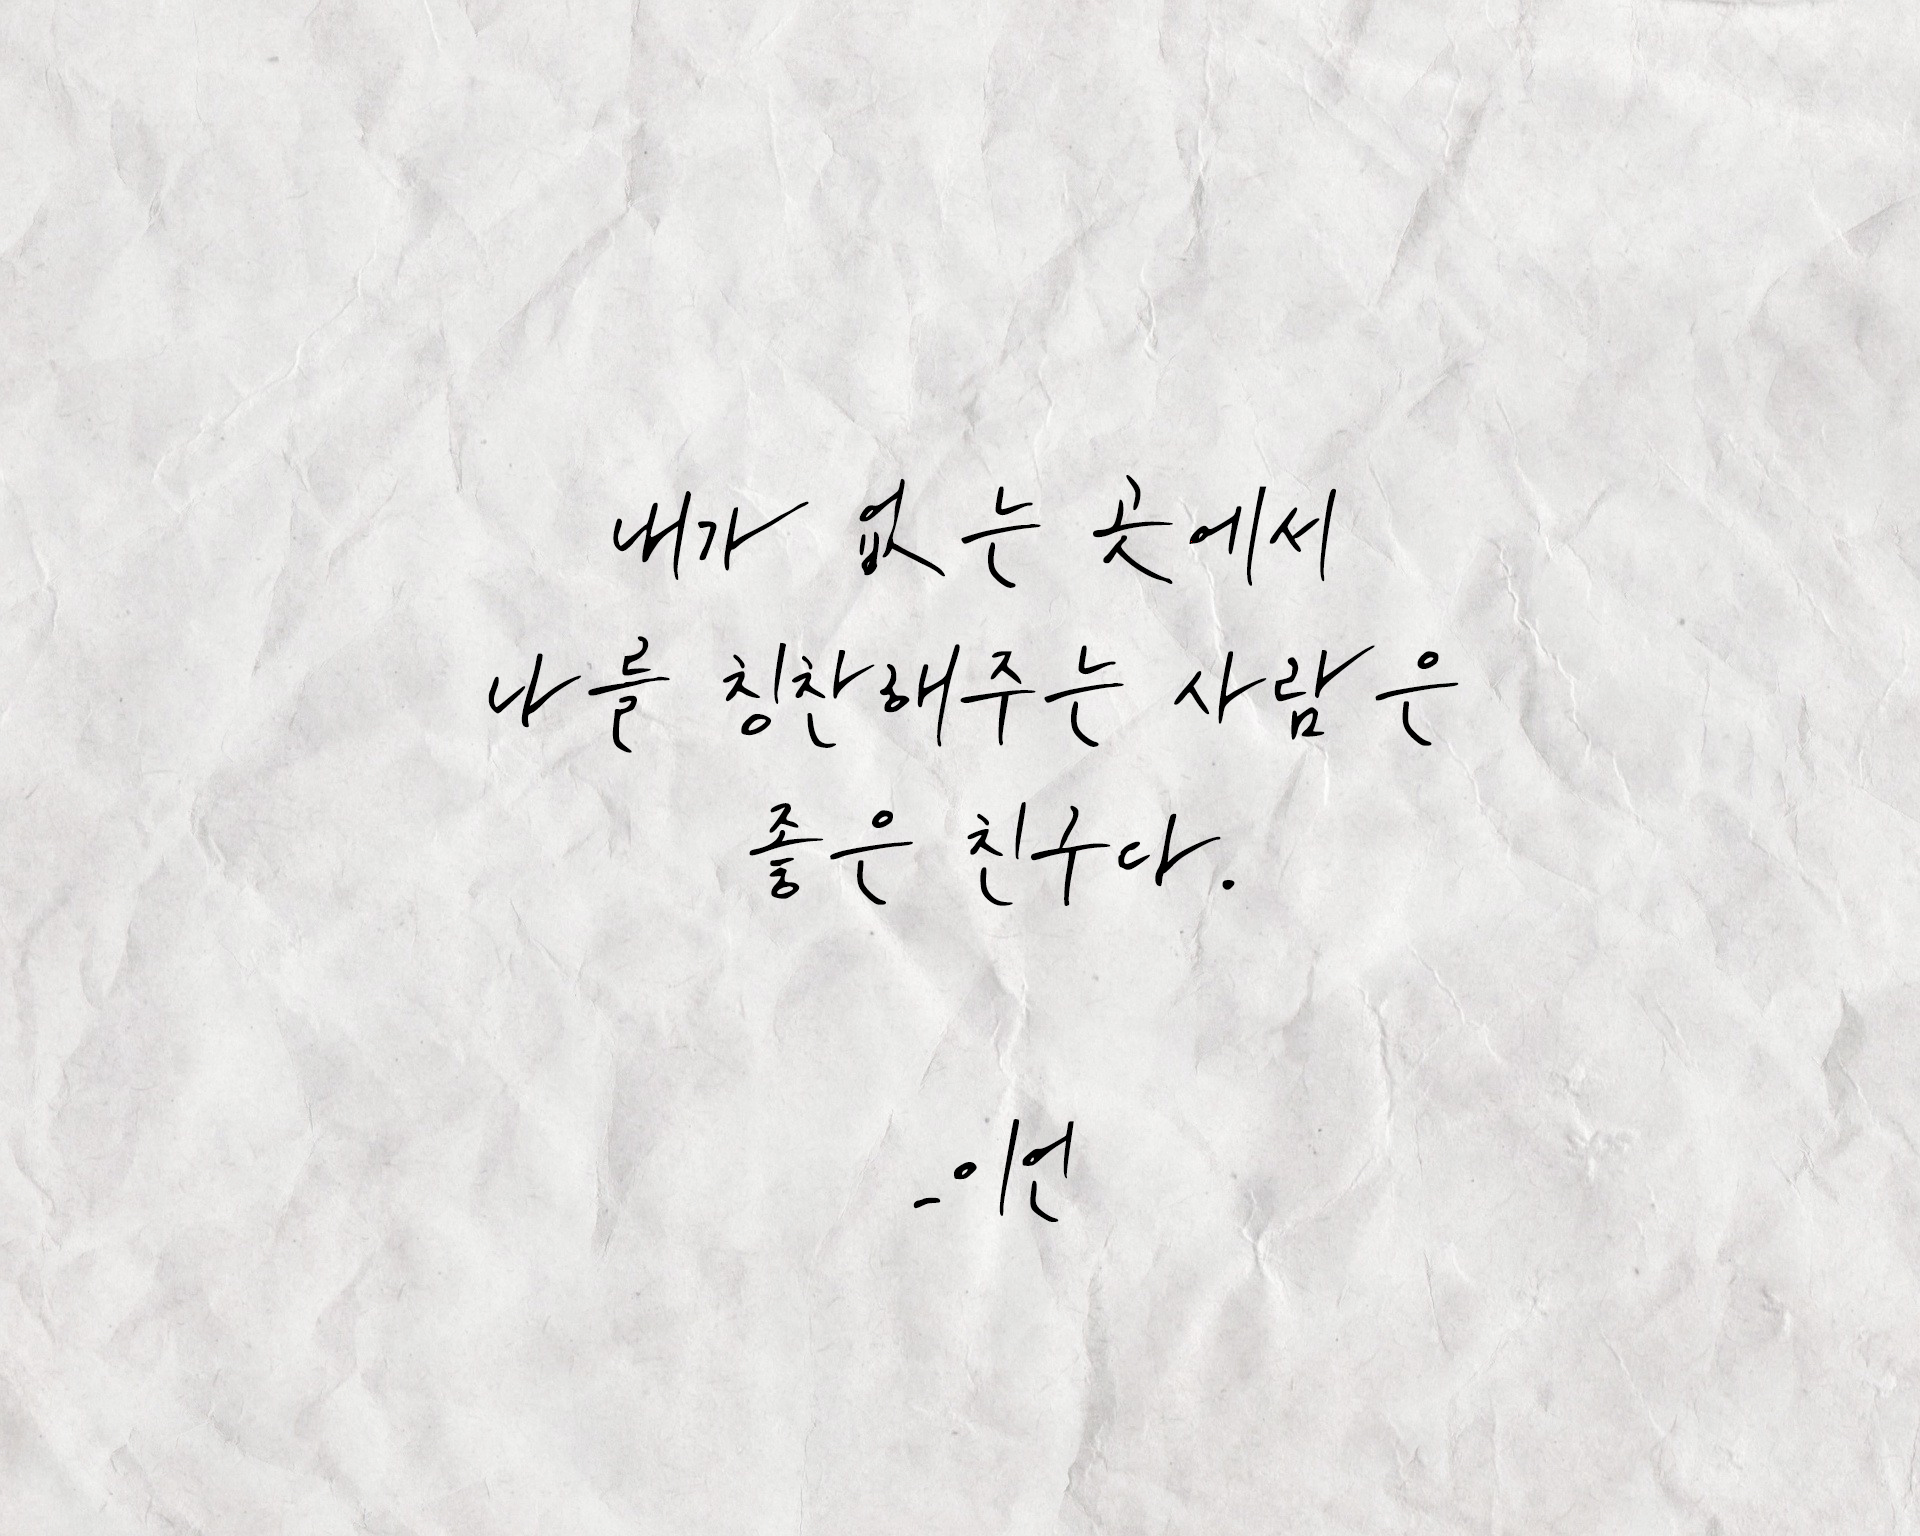 내가 없는 곳에서
나를 칭찬해주는 사람은
좋은 친구다.
_이언